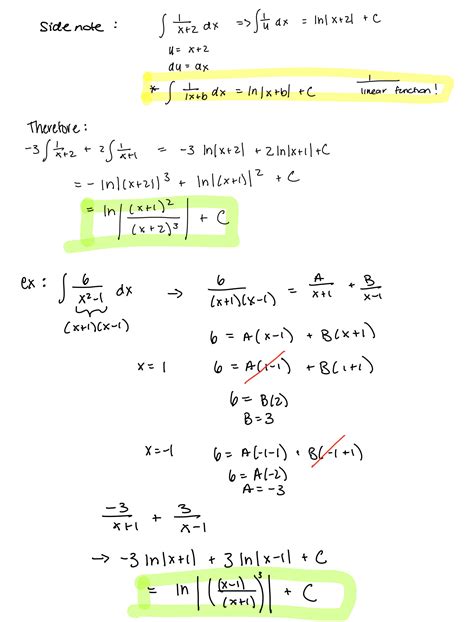 Side note: ∫ 1/(x+2) dx => ∫ 1/u dx = ln|x+2| + C
u = x+2
du = dx
* ∫ 1/(1x+b) dx = ln|x+b| + C 1/linear function!
Therefore:
-3∫ 1/(x+2) + 2∫ 1/(x+1) = -3 ln|x+2| + 2ln|x+1|+C
= -ln|(x+2)|³ + ln|(x+1)|² + C
= ln|(x+1)²/(x+2)³| + C
ex: ∫ 6/(x²-1) dx → 6/((x+1)(x-1)) = A/(x+1) + B/(x-1)
(x+1)(x-1)
6 = A(x-1) + B(x+1)
x = 1 6 = A(1-1) + B(1+1)
6 = B(2)
B = 3
x=-1 6 = A(-1-1) + B(-1+1)
6 = A(-2)
A = -3
-3/(x+1) + 3/(x-1)
→ -3 ln|x+1| + 3 ln|x-1| + C
= ln|((x-1)/(x+1))³| + C